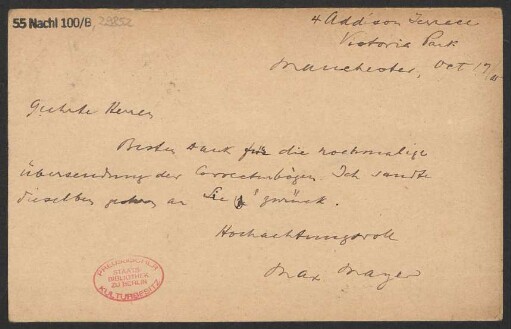 55 Nachl 100/B, 29852
4 Addison Terrace
Victoria Park
Manchester, Oct 17/
Geehrte Herren
Besten Dank für die nochmalige
Übersendung der Correcturbögen. Ich sandte
dieselben an Sie zurück.
Hochachtungsvoll
Max Mayer
PREUSSISCHER
STAATS-
BIBLIOTHEK
ZU BERLIN
KULTURBESITZ